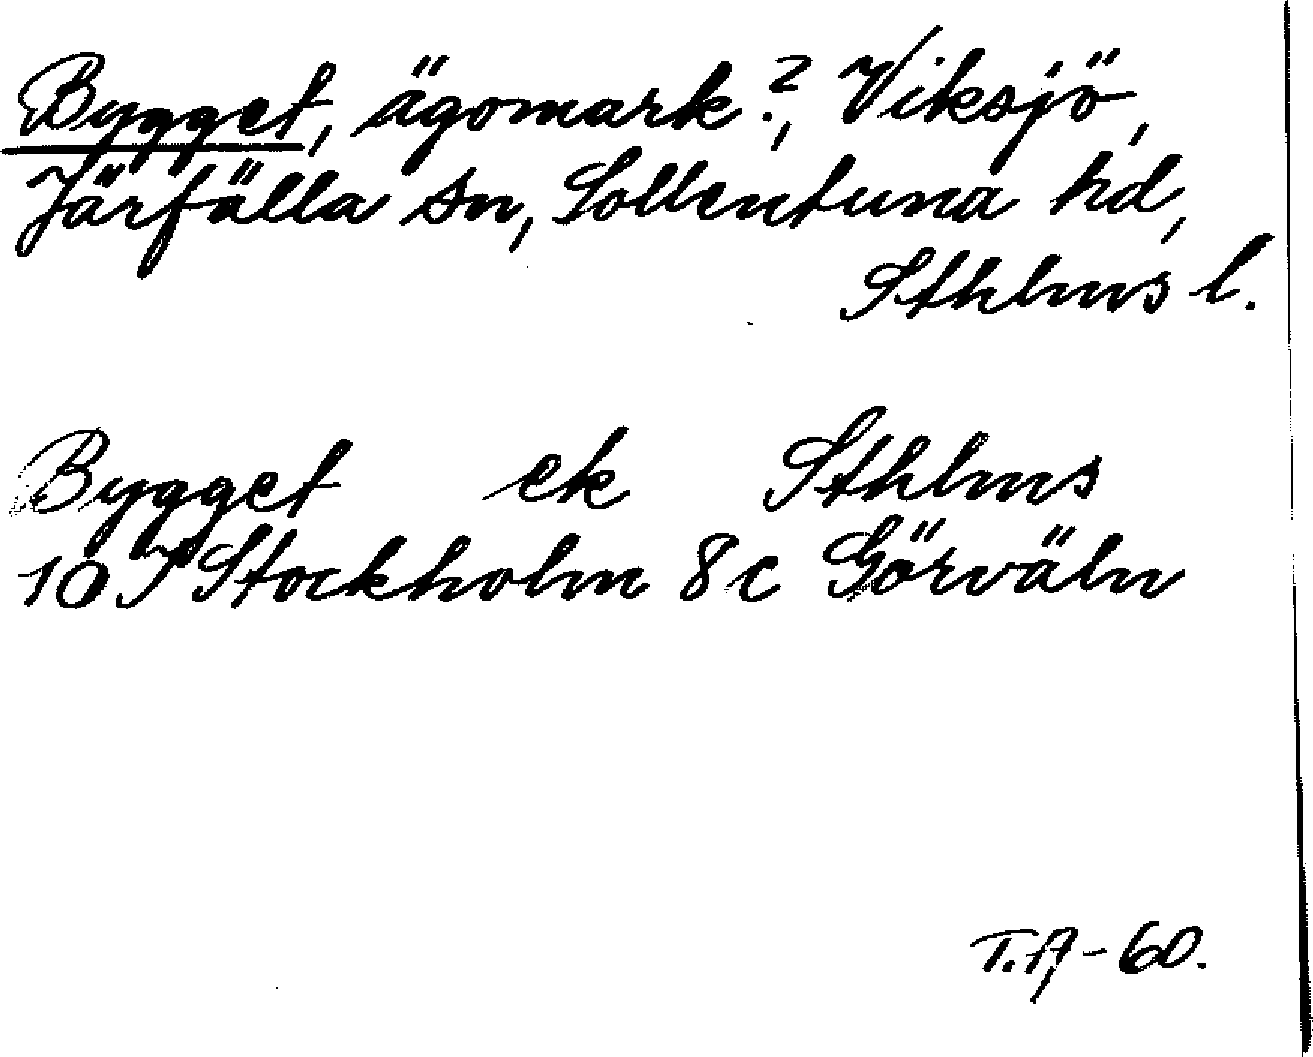 Bygget, ägomark?, Viksjö,
Järfälla sn, Sollentuna hd,
Sthlms l.
Bygget ek Sthlms
10 I Stockholm 8c Görväln
T.A-60.